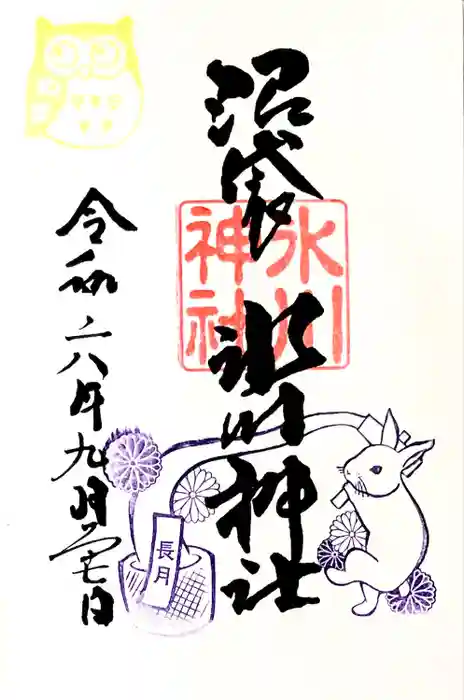 沼袋
氷川神社
氷川
神社
令和六年九月七日
長月